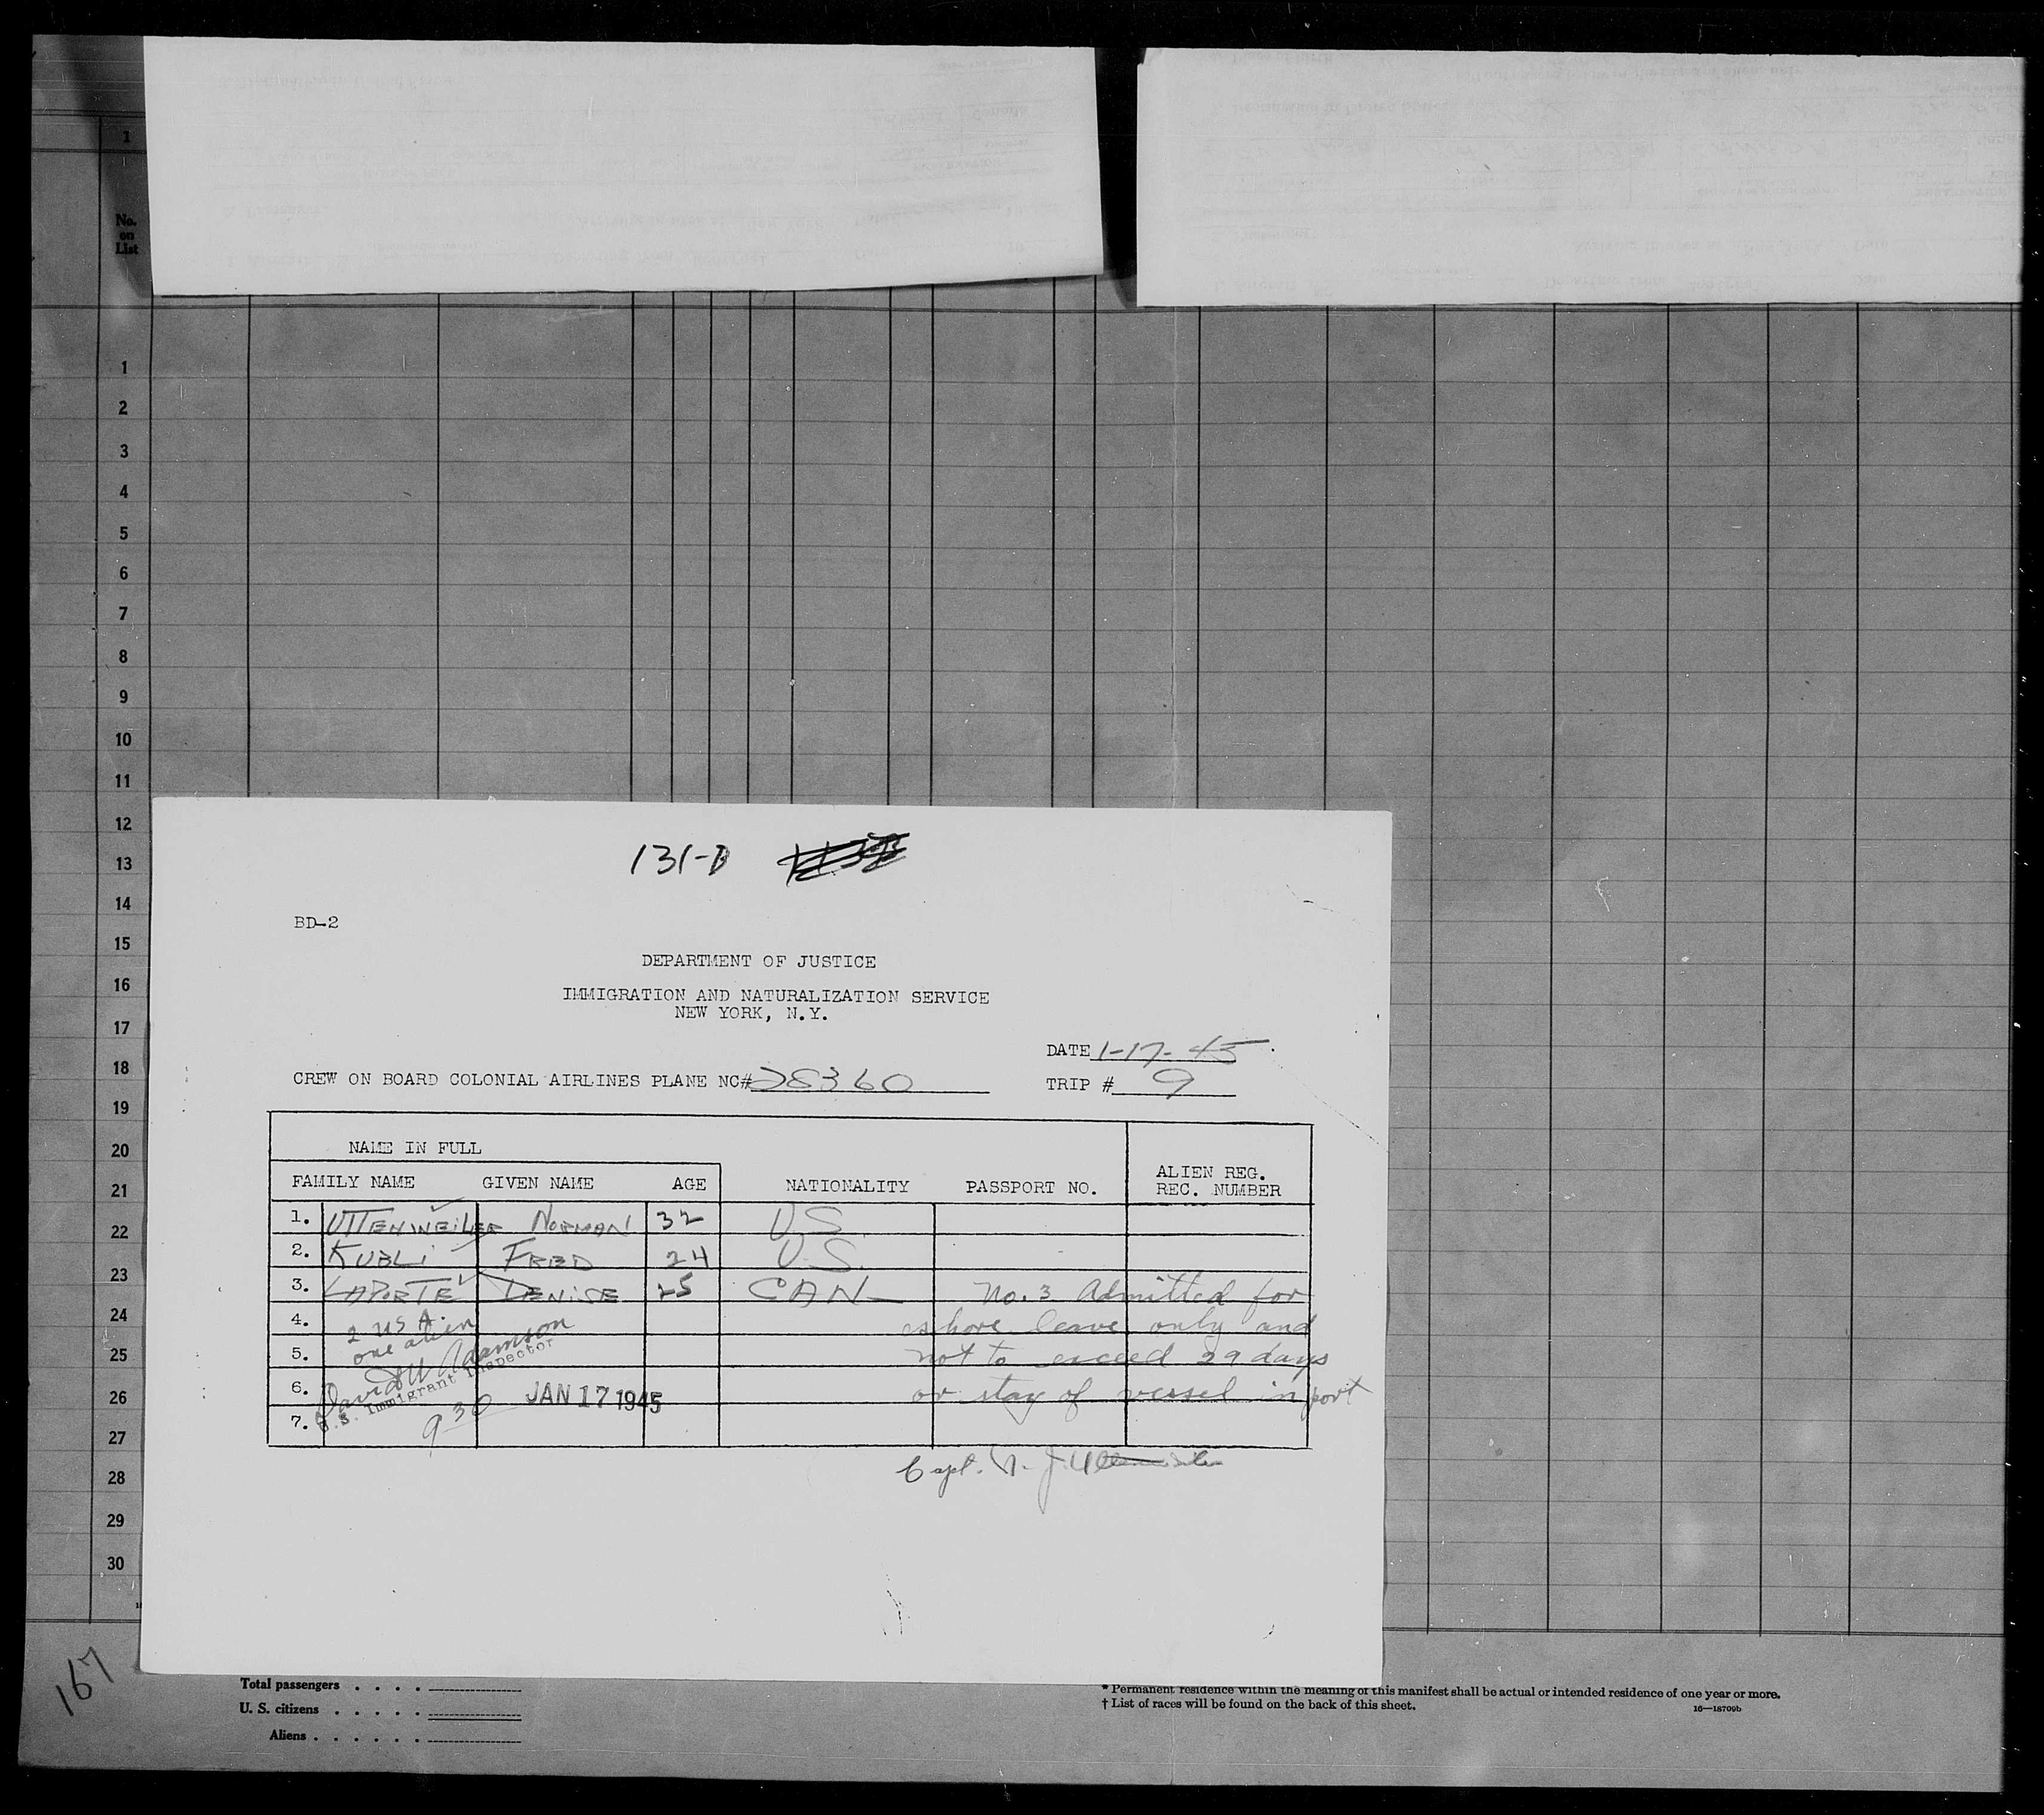 1
No.
on
List
1
2
3
4
5
6
7
8
9
10
11
12
13
14
15
16
17
18
19
20
21
22
23
24
25
26
27
28
29
30
131-B
BD-2
DEPARTMENT OF JUSTICE
IMMIGRATION AND NATURALIZATION SERVICE
NEW YORK, N.Y.
DATE 1-17-45
CREW ON BOARD COLONIAL AIRLINES PLANE NC# 28360
TRIP # 9
NAME IN FULL
FAMILY NAME GIVEN NAME AGE NATIONALITY PASSPORT NO. ALIEN REG. REC. NUMBER
1. UTTENWEILER NORMAN 32 U.S.
2. KUBLI FRED 24 U.S.
3. LAPORTE DENISE 25 CAN No. 3 Admitted for
4. 2 USA shore leave only and
one alien
5. David W Adamson not to exceed 29 days
U.S. Immigrant Inspector
6. JAN 17 1945 or stay of vessel in port
7. 930
Capt. N. J.
167
Total passengers . . . .
U. S. citizens . . . . .
Aliens . . . . . .
* Permanent residence within the meaning of this manifest shall be actual or intended residence of one year or more.
† List of races will be found on the back of this sheet.
16—18709b